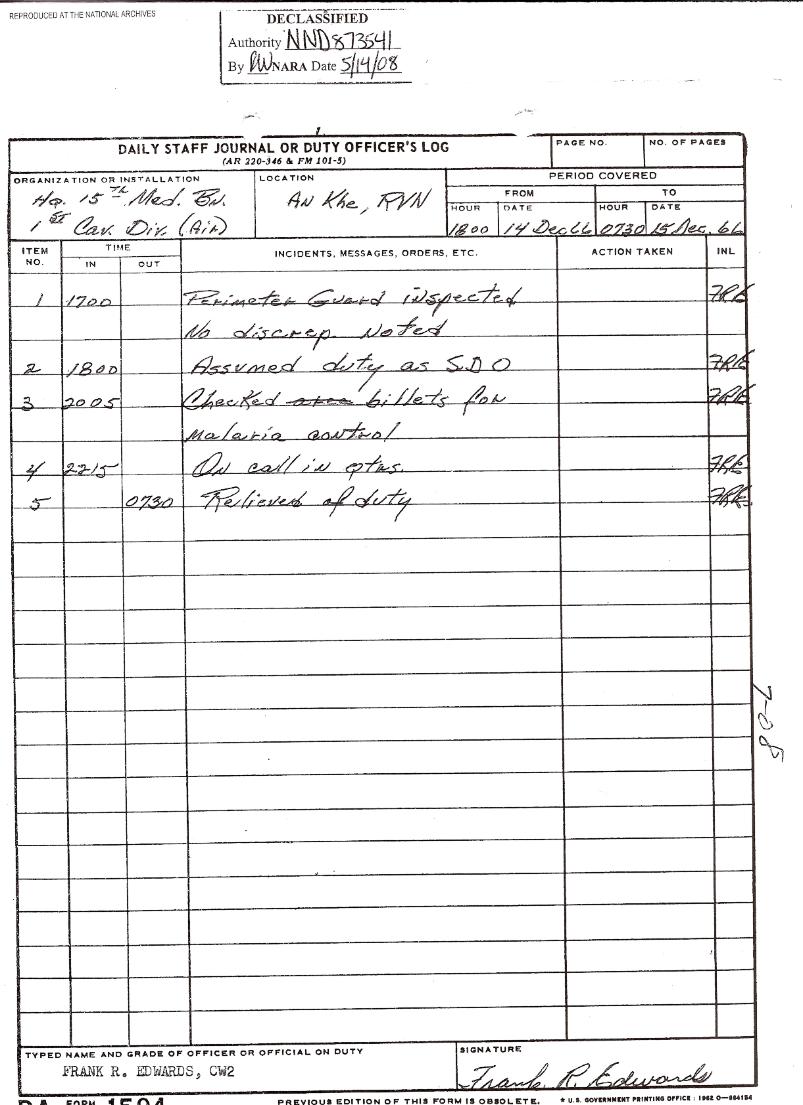 REPRODUCED AT THE NATIONAL ARCHIVES
DECLASSIFIED
Authority NND873541
By NARA Date 5/14/08
DAILY STAFF JOURNAL OR DUTY OFFICER'S LOG
(AR 220-346 & FM 101-5)
PAGE NO.
NO. OF PAGES
ORGANIZATION OR INSTALLATION
Hq. 15th Med. Bn.
1st Cav. Div. (Air)
LOCATION
An Khe, RVN
PERIOD COVERED
FROM TO
HOUR DATE HOUR DATE
1800 14 Dec 66 0730 15 Dec. 66
ITEM NO. TIME IN OUT INCIDENTS, MESSAGES, ORDERS, ETC. ACTION TAKEN INL
1 1700 Perimeter Guard inspected FRE
No discrep. Noted
2 1800 Assumed duty as SDO FRE
3 2005 Checked area billets for FRE
Malaria control
4 2215 On call in qtrs. FRE
5 0730 Relieved of duty FRE
7-08
TYPED NAME AND GRADE OF OFFICER OR OFFICIAL ON DUTY
FRANK R. EDWARDS, CW2
SIGNATURE
Frank R. Edwards
DA FORM 1594
PREVIOUS EDITION OF THIS FORM IS OBSOLETE.
* U.S. GOVERNMENT PRINTING OFFICE : 1962 O—664154